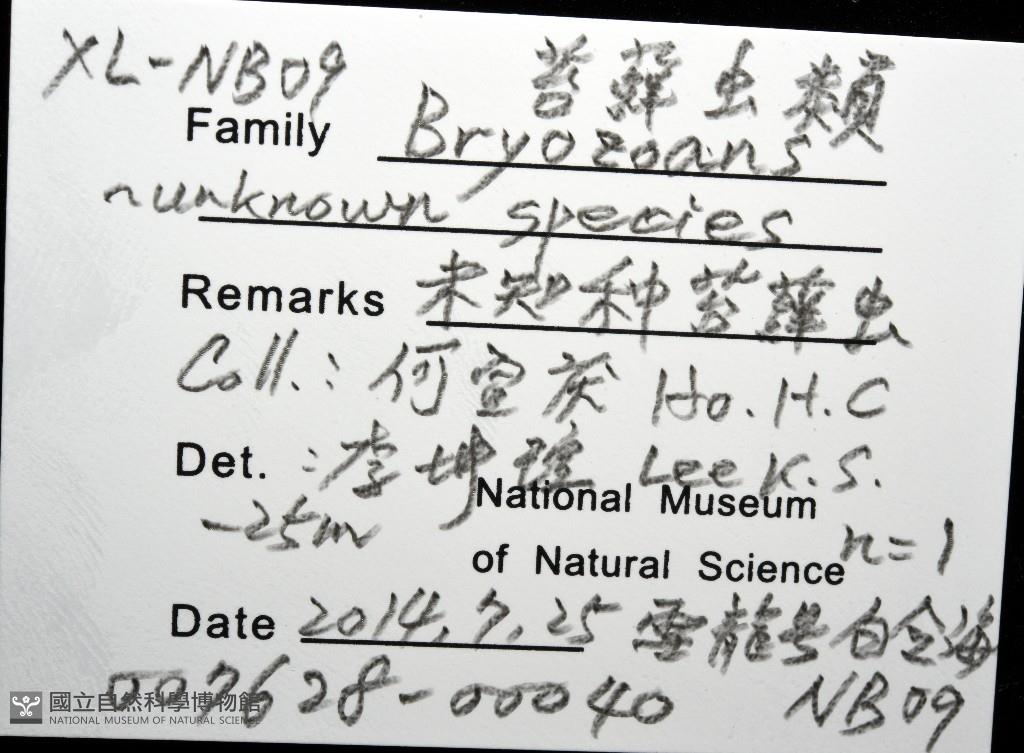 XL-NB09 苔蘚虫類
Family Bryozoans
~unknown species
Remarks 未知种苔蘚虫
Coll.: 何宣 Ho. H. C
Det. : 李坤瑄 Lee K. S.
-25m National Museum
of Natural Science n=1
Date 2014.7.25 雪龍号白令海
007628-00040 NB09
國立自然科學博物館
NATIONAL MUSEUM OF NATURAL SCIENCE